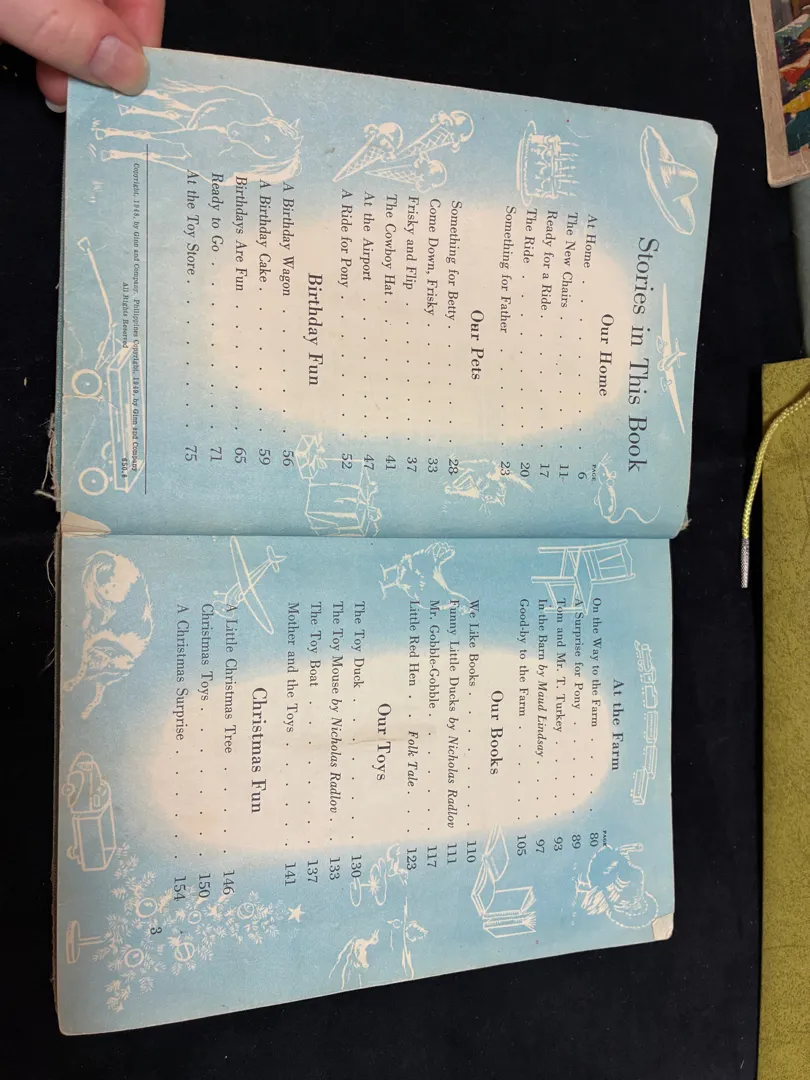 Stories in This Book
Our Home
PAGE
At Home . . . . . . . . 6
The New Chairs . . . . . . 11
Ready for a Ride . . . . . . 17
The Ride . . . . . . . . 20
Something for Father . . . . . 23
Our Pets
Something for Betty . . . . . 28
Come Down, Frisky . . . . . 33
Frisky and Flip . . . . . . 37
The Cowboy Hat . . . . . . 41
At the Airport . . . . . . 47
A Ride for Pony . . . . . . 52
Birthday Fun
A Birthday Wagon . . . . . . 56
A Birthday Cake . . . . . . 59
Birthdays Are Fun . . . . . . 65
Ready to Go . . . . . . . 71
At the Toy Store . . . . . . 75
Copyright, 1948, by Ginn and Company. Philippines Copyright, 1949, by Ginn and Company
All Rights Reserved
650.4
At the Farm
PAGE
On the Way to the Farm . . . 80
A Surprise for Pony . . . . 89
Tom and Mr. T. Turkey . . . . 93
In the Barn by Maud Lindsay . . . 97
Good-by to the Farm . . . . 105
Our Books
We Like Books . . . . . . 110
Funny Little Ducks by Nicholas Radlov 111
Mr. Gobble-Gobble . . . . . 117
Little Red Hen . . Folk Tale . . 123
Our Toys
The Toy Duck . . . . . . 130
The Toy Mouse by Nicholas Radlov . . 133
The Toy Boat . . . . . . 137
Mother and the Toys . . . . . 141
Christmas Fun
A Little Christmas Tree . . . . 146
Christmas Toys . . . . . . 150
A Christmas Surprise . . . . 154
3